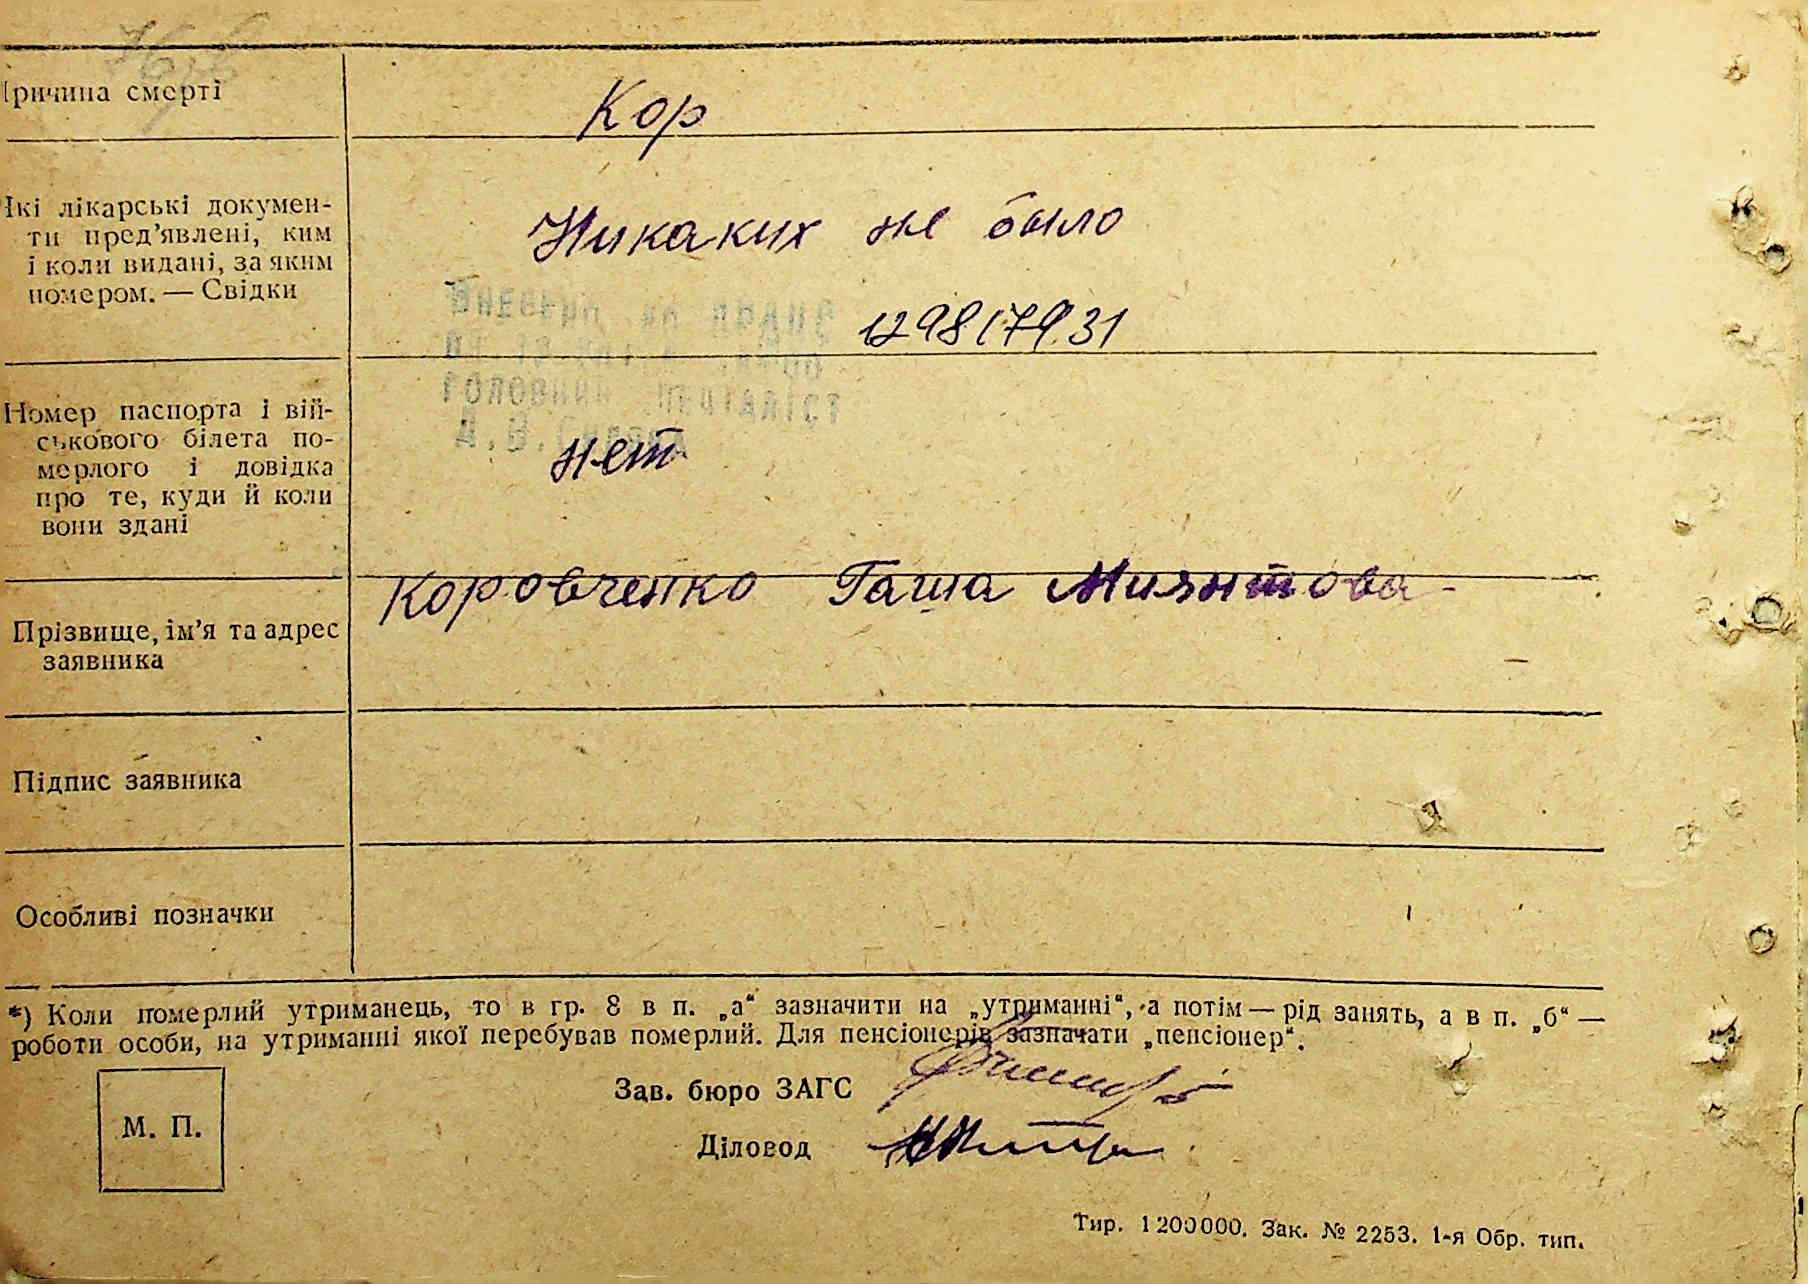 Причина смерті
Кор
Які лікарські докумен-
ти пред'явлені, ким
і коли видані, за яким
номером. — Свідки
Никаких не было
129817931
Внесено до
головний спеціаліст
Номер паспорта і вій-
ськового білета по-
мерлого і довідка
про те, куди й коли
вони здані
нет
Прізвище, ім'я та адрес
заявника
Коровченко Гаша
Підпис заявника
Особливі позначки
*) Коли померлий утриманець, то в гр. 8 в п. „а“ зазначити на „утриманні“, а потім — рід занять, а в п. „б“ —
роботи особи, на утриманні якої перебував померлий. Для пенсіонерів зазначати „пенсіонер“.
М. П.
Зав. бюро ЗАГС
Діловод
Тир. 1200000. Зак. № 2253. 1-я Обр. тип.